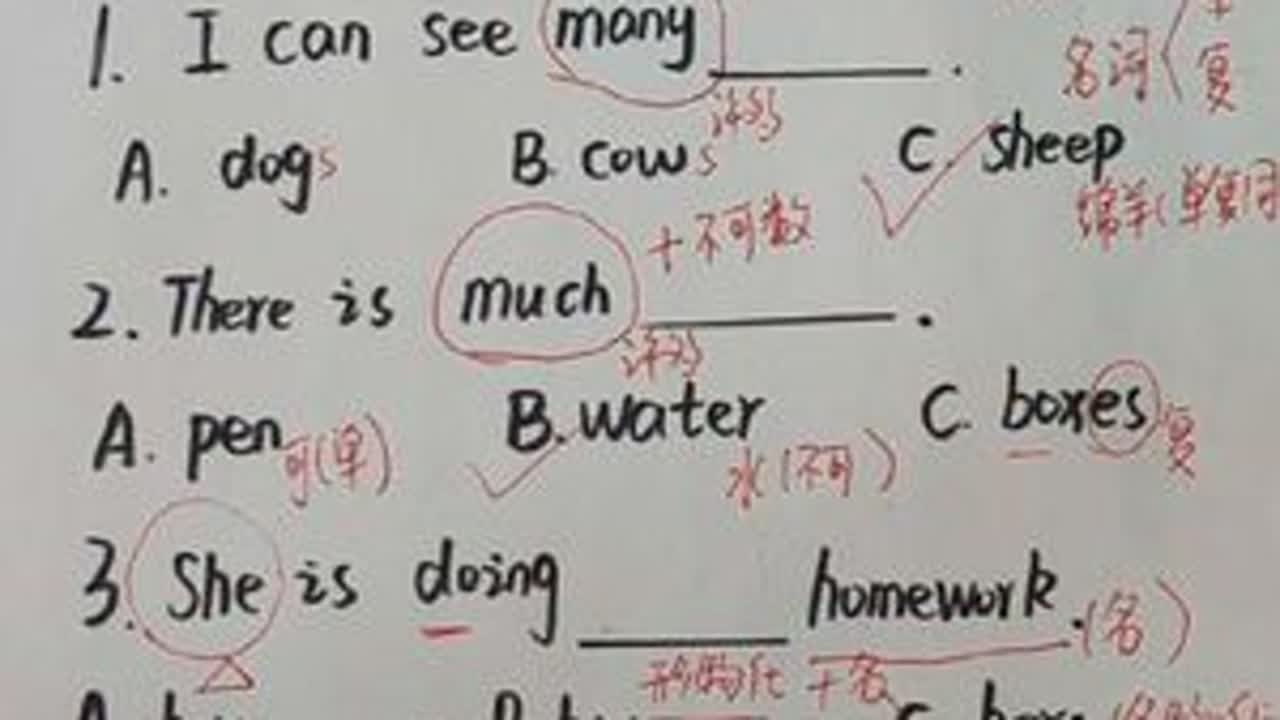 1. I can see many ______.
名词 复
许多
A. dogs B. cows C. sheep
绵羊(单复同
+不可数
2. There is much ______.
许多
A. pen B. water C. boxes
可(单) 水(不可) 复
3. She is doing ______ homework. (名)
形物代 + 名